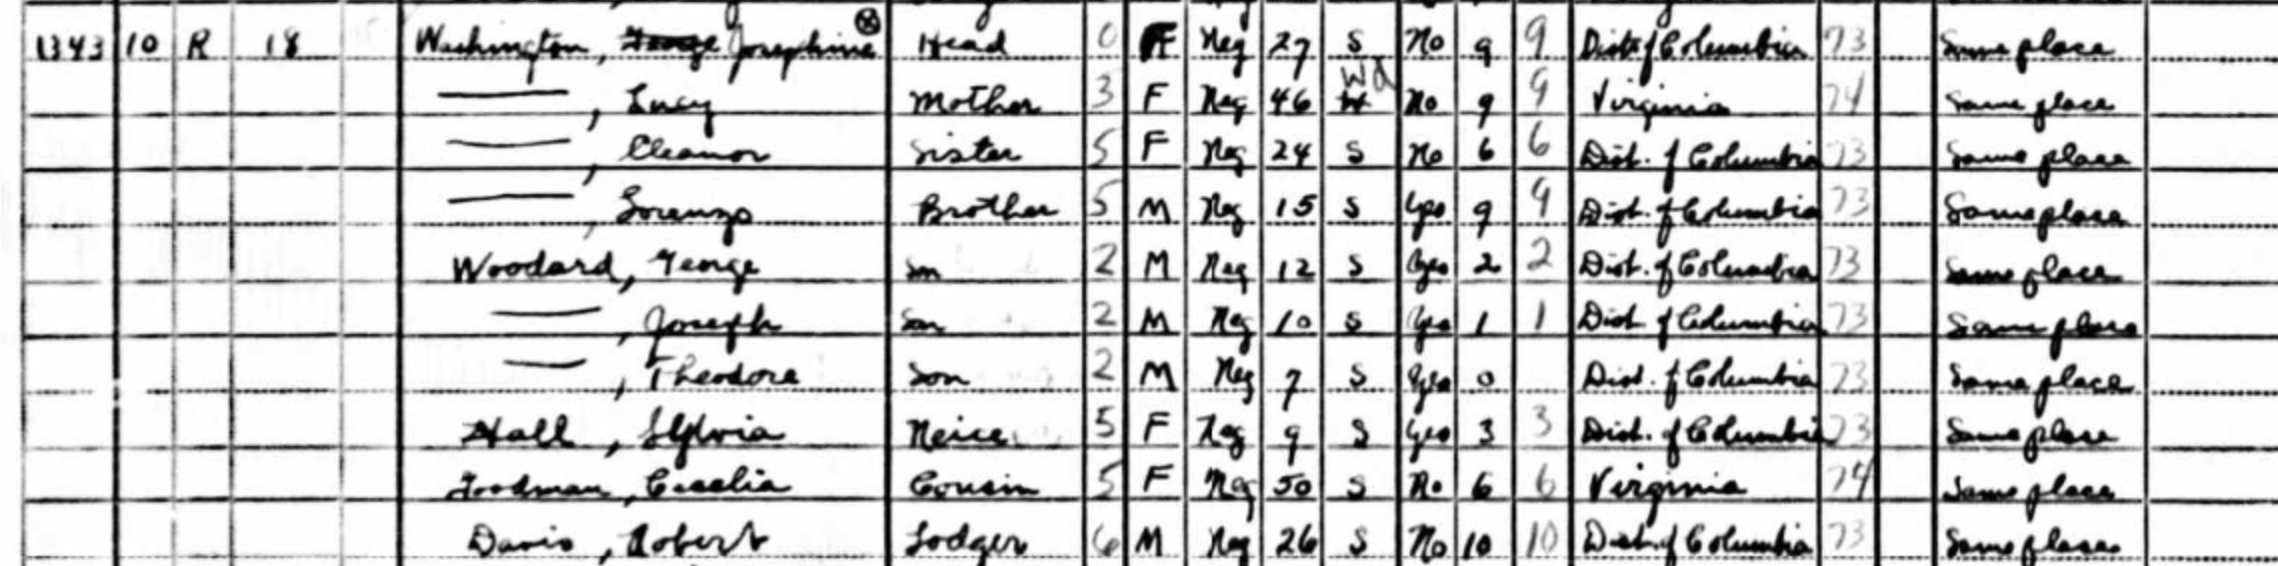 1343 10 R 18 Washington, George Josephine Head 0 F Neg 27 S No 9 9 Dist of Columbia 73 Same place
—, Lucy Mother 3 F Neg 46 W Wd No 9 9 Virginia 74 Same place
—, Eleanor Sister 5 F Neg 24 S No 6 6 Dist. of Columbia 73 Same place
—, Lorenzo Brother 5 M Neg 15 S Yes 9 9 Dist. of Columbia 73 Same place
Woodard, George Son 2 M Neg 12 S Yes 2 2 Dist. of Columbia 73 Same place
—, Joseph Son 2 M Neg 10 S Yes 1 1 Dist of Columbia 73 Same place
—, Theodore Son 2 M Neg 7 S Yes 0 Dist. of Columbia 73 Same place
Hall, Sylvia Neice 5 F Neg 9 S Yes 3 3 Dist. of Columbia 73 Same place
Goodman, Cecelia Cousin 5 F Neg 50 S No 6 6 Virginia 74 Same place
Davis, Robert Lodger 6 M Neg 26 S No 10 10 Dist of Columbia 73 Same place